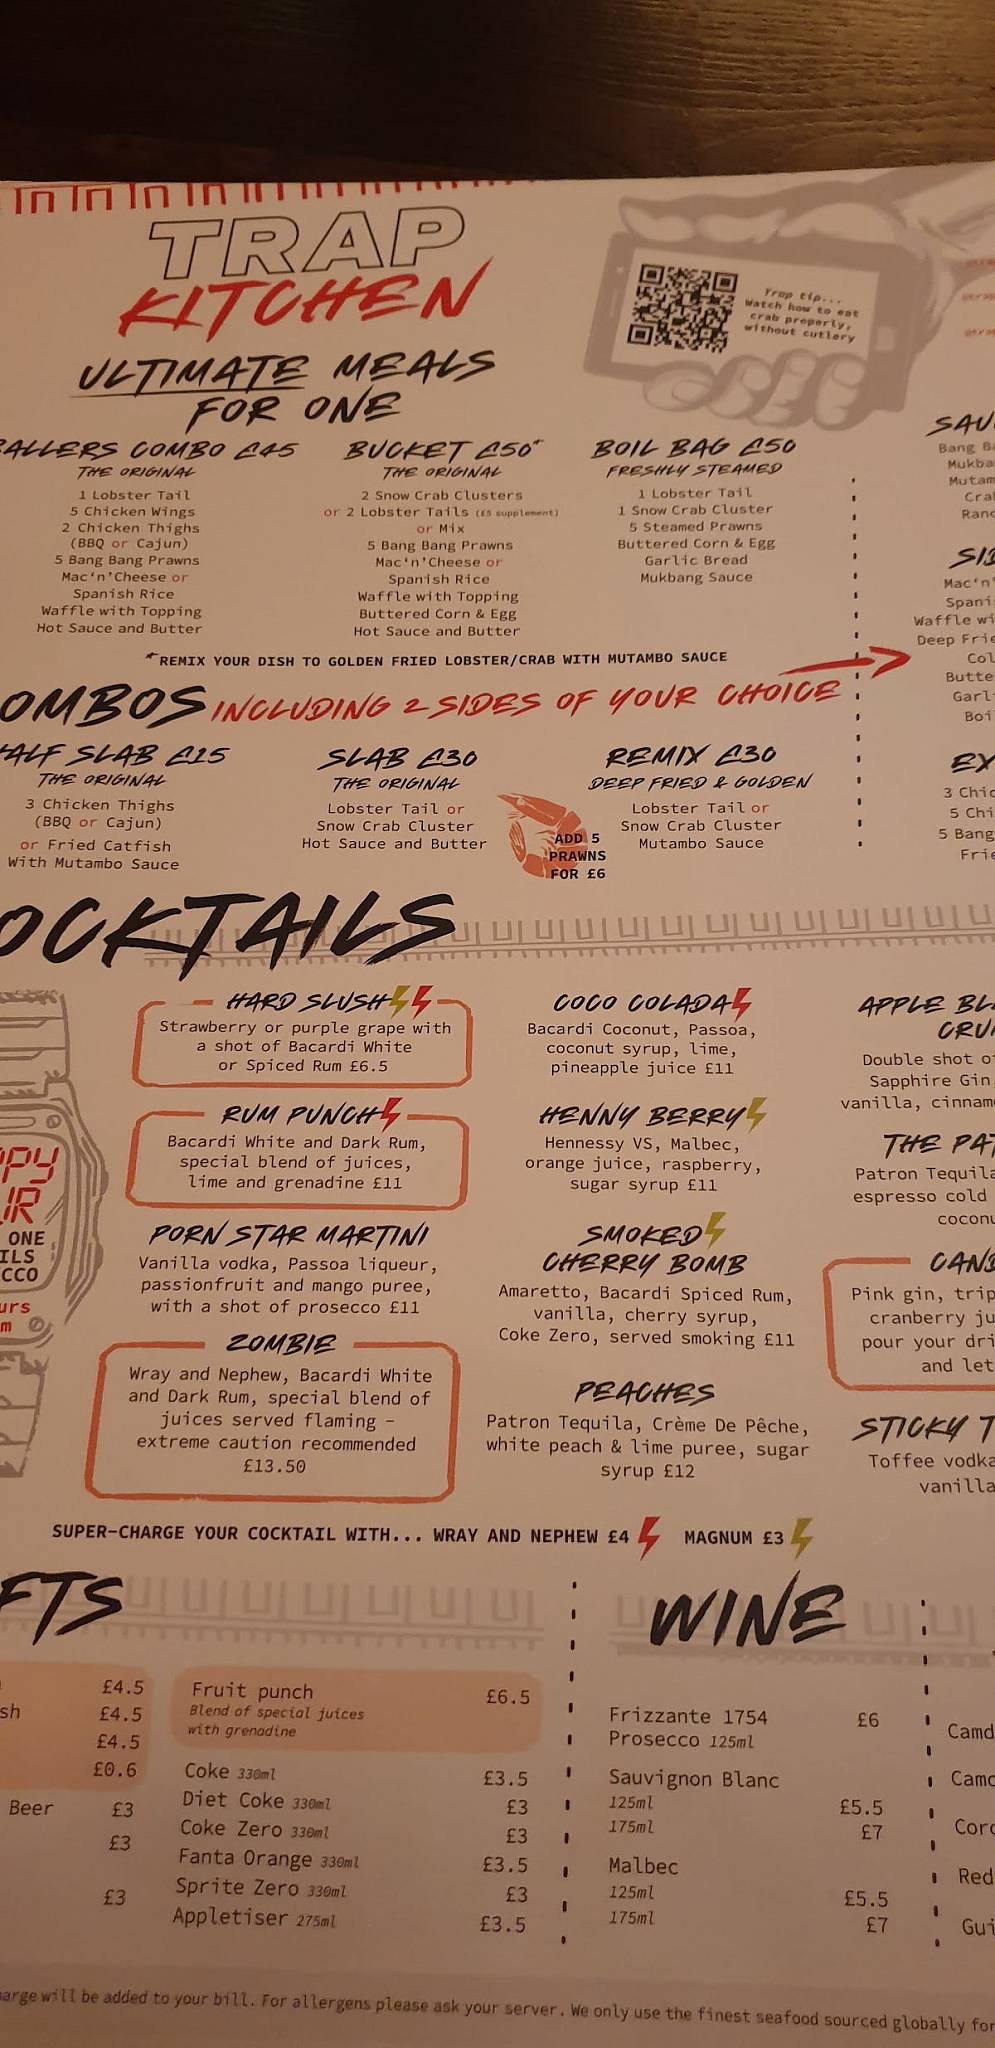 TRAP
KITCHEN
Trap tip...
Watch how to eat
crab properly,
without cutlery
ULTIMATE MEALS
FOR ONE
BALLERS COMBO £45
THE ORIGINAL
1 Lobster Tail
5 Chicken Wings
2 Chicken Thighs
(BBQ or Cajun)
5 Bang Bang Prawns
Mac'n'Cheese or
Spanish Rice
Waffle with Topping
Hot Sauce and Butter
BUCKET £50*
THE ORIGINAL
2 Snow Crab Clusters
or 2 Lobster Tails (£5 supplement)
or Mix
5 Bang Bang Prawns
Mac'n'Cheese or
Spanish Rice
Waffle with Topping
Buttered Corn & Egg
Hot Sauce and Butter
BOIL BAG £50
FRESHLY STEAMED
1 Lobster Tail
1 Snow Crab Cluster
5 Steamed Prawns
Buttered Corn & Egg
Garlic Bread
Mukbang Sauce
*REMIX YOUR DISH TO GOLDEN FRIED LOBSTER/CRAB WITH MUTAMBO SAUCE
SAU
Bang B
Mukba
Mutam
Cra
Ranc
SID
Mac'n'
Spani
Waffle wi
Deep Frie
Col
Butte
Garl
Boi
EX
3 Chic
5 Chi
5 Bang
Frie
OMBOS INCLUDING 2 SIDES OF YOUR CHOICE
HALF SLAB £15
THE ORIGINAL
3 Chicken Thighs
(BBQ or Cajun)
or Fried Catfish
With Mutambo Sauce
SLAB £30
THE ORIGINAL
Lobster Tail or
Snow Crab Cluster
Hot Sauce and Butter
ADD 5
PRAWNS
FOR £6
REMIX £30
DEEP FRIED & GOLDEN
Lobster Tail or
Snow Crab Cluster
Mutambo Sauce
OCKTAILS
PPY
UR
ONE
ILS
CCO
urs
m
HARD SLUSH
Strawberry or purple grape with
a shot of Bacardi White
or Spiced Rum £6.5
RUM PUNCH
Bacardi White and Dark Rum,
special blend of juices,
lime and grenadine £11
PORN STAR MARTINI
Vanilla vodka, Passoa liqueur,
passionfruit and mango puree,
with a shot of prosecco £11
ZOMBIE
Wray and Nephew, Bacardi White
and Dark Rum, special blend of
juices served flaming –
extreme caution recommended
£13.50
COCO COLADA
Bacardi Coconut, Passoa,
coconut syrup, lime,
pineapple juice £11
HENNY BERRY
Hennessy VS, Malbec,
orange juice, raspberry,
sugar syrup £11
SMOKED
CHERRY BOMB
Amaretto, Bacardi Spiced Rum,
vanilla, cherry syrup,
Coke Zero, served smoking £11
PEACHES
Patron Tequila, Crème De Pêche,
white peach & lime puree, sugar
syrup £12
APPLE BL
CRU
Double shot o
Sapphire Gin
vanilla, cinnam
THE PA
Patron Tequila
espresso cold
coconu
CAN
Pink gin, trip
cranberry ju
pour your dri
and let
STICKY T
Toffee vodka
vanilla
SUPER-CHARGE YOUR COCKTAIL WITH... WRAY AND NEPHEW £4 MAGNUM £3
FTS
£4.5
sh £4.5
£4.5
£0.6
Beer £3
£3
£3
Fruit punch £6.5
Blend of special juices
with grenadine
Coke 330ml £3.5
Diet Coke 330ml £3
Coke Zero 330ml £3
Fanta Orange 330ml £3.5
Sprite Zero 330ml £3
Appletiser 275ml £3.5
WINE
Frizzante 1754 £6
Prosecco 125ml
Sauvignon Blanc
125ml £5.5
175ml £7
Malbec
125ml £5.5
175ml £7
Camd
Camd
Coro
Red
Gui
arge will be added to your bill. For allergens please ask your server. We only use the finest seafood sourced globally for